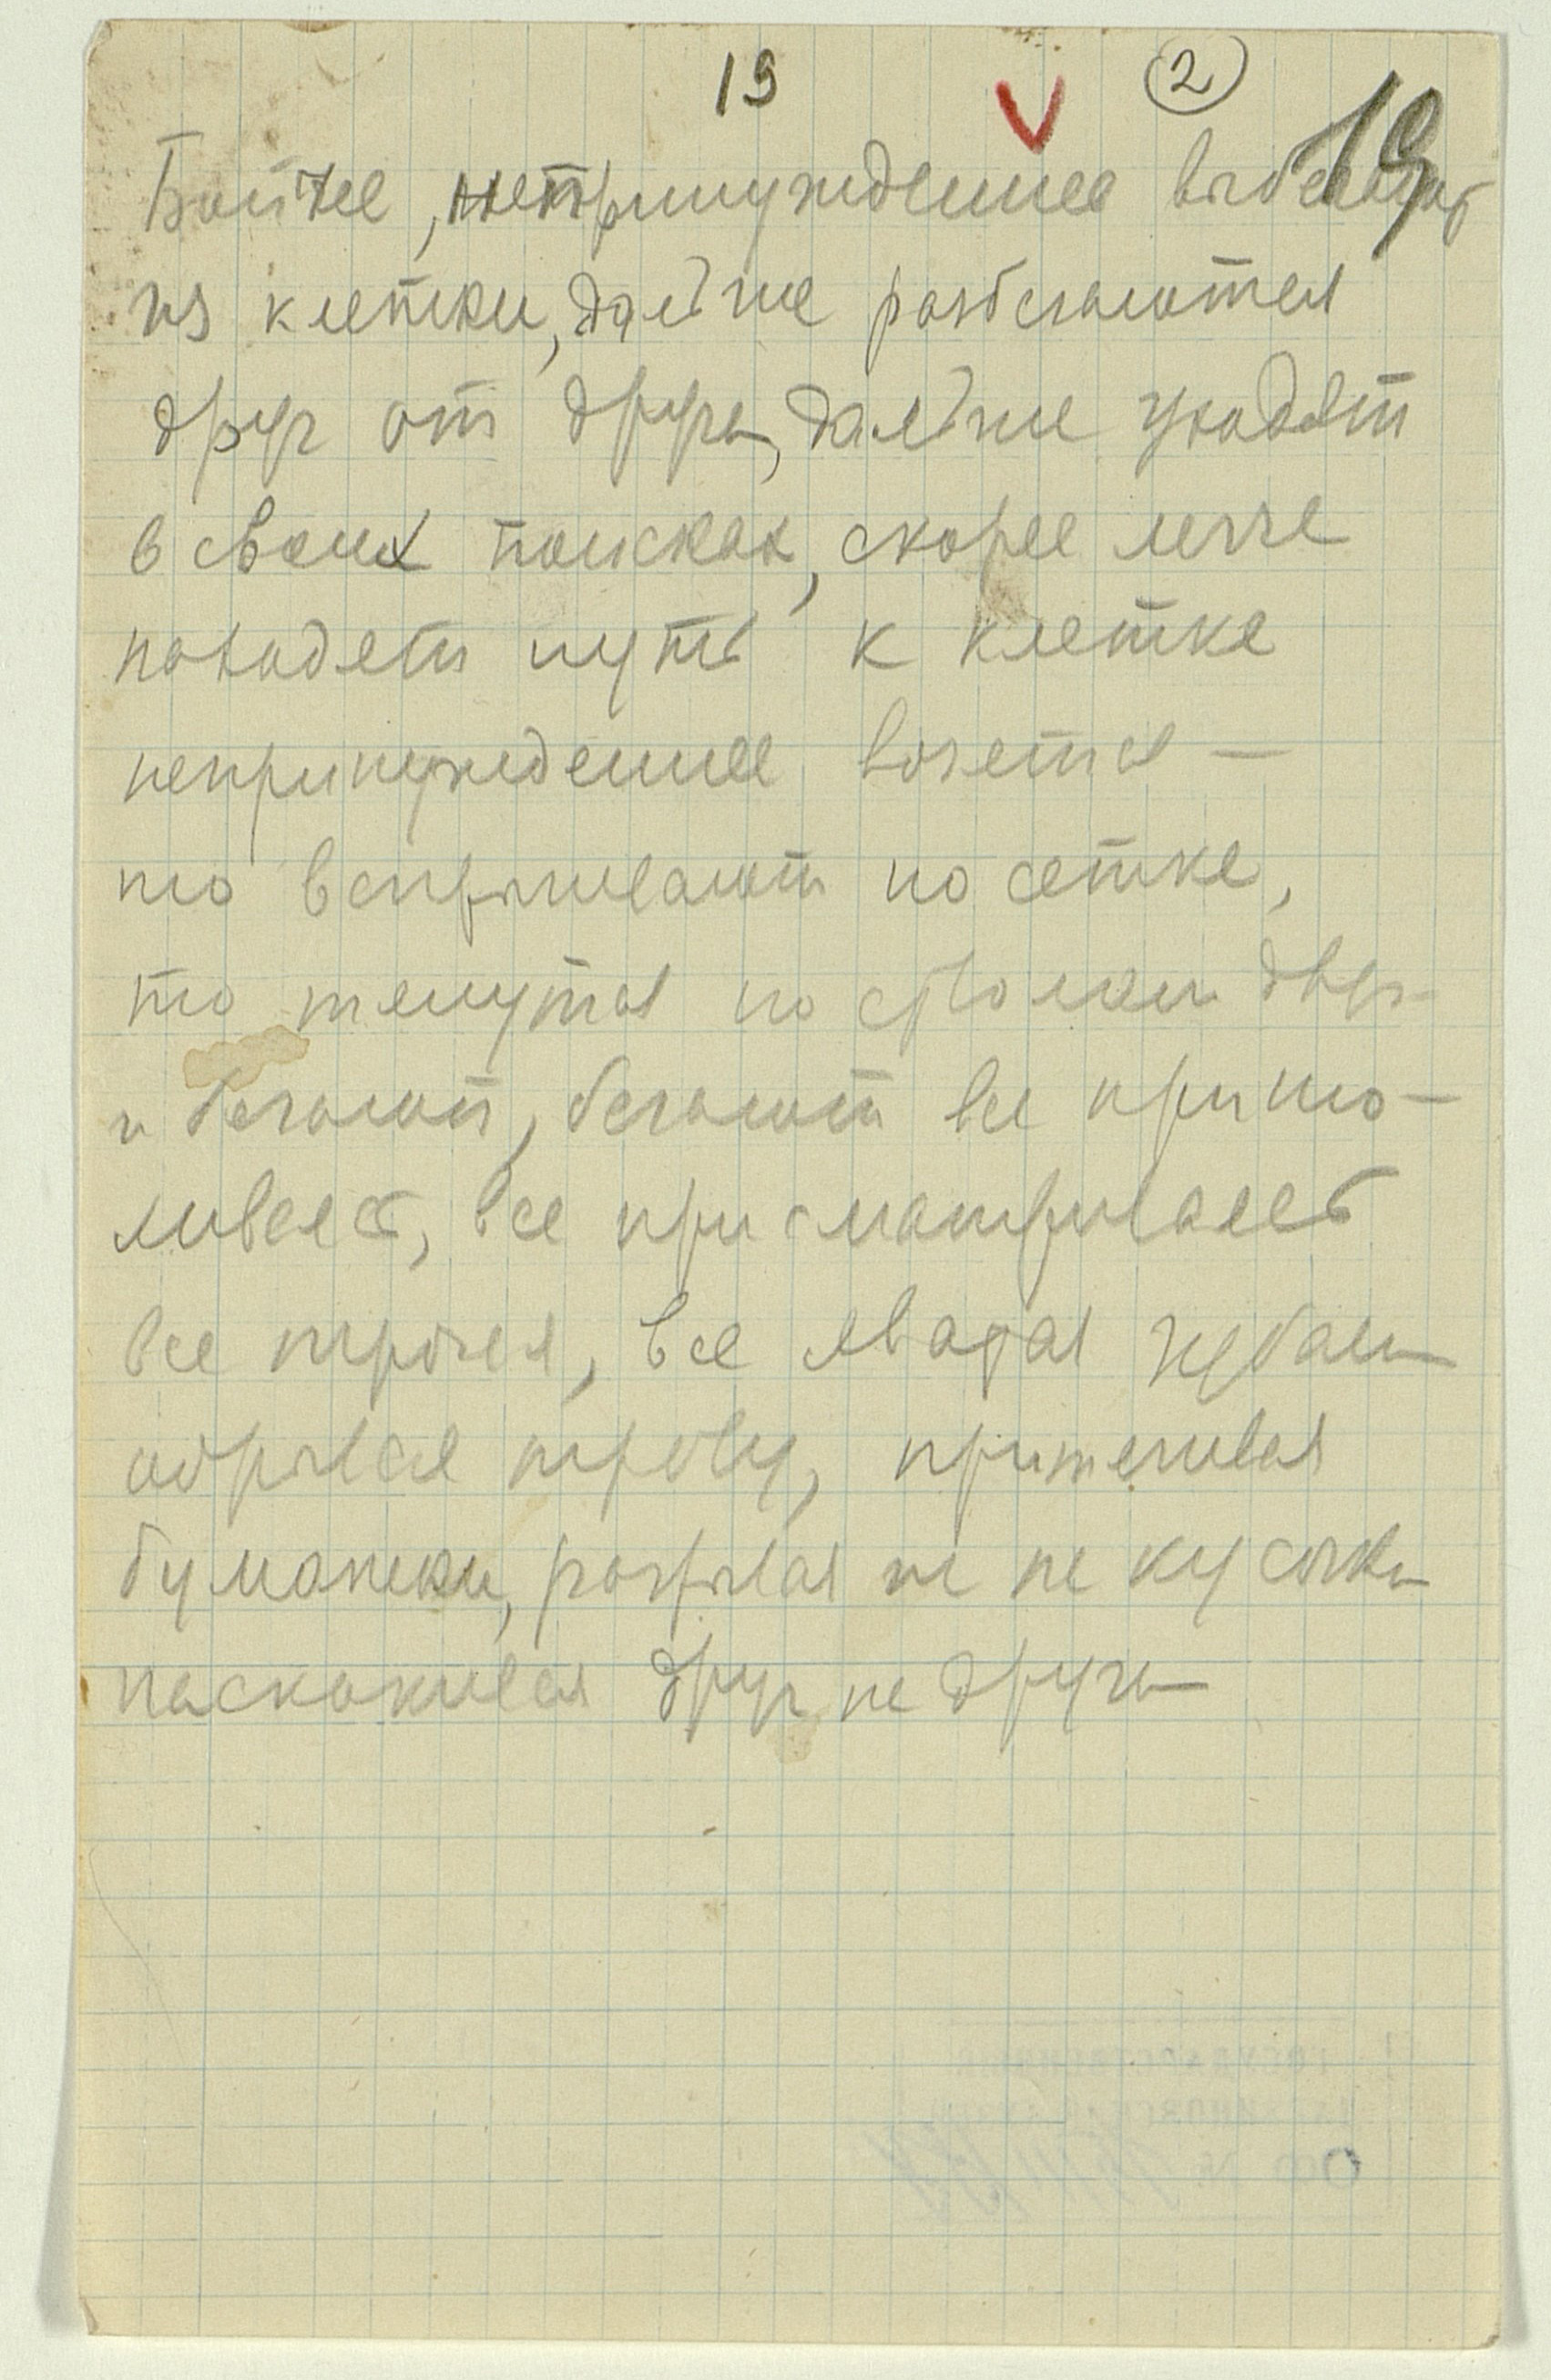 19 2 19
Бойчее, непринужденнее выбегают
из клетки, дальше разбегаются
друг от друга, дальше уходят
в своих поисках, скорее легче
находят путь к клетке
непринужденнее возятся —
то вспрыгивают по сетке,
то тянутся по
и бегают, бегают все приню-
хиваясь, все присматриваясь
все трогая, все хватая зубами
обрывая траву, притягивая
бумажки, разрывая их на кусочки
наскакивая друг на друга